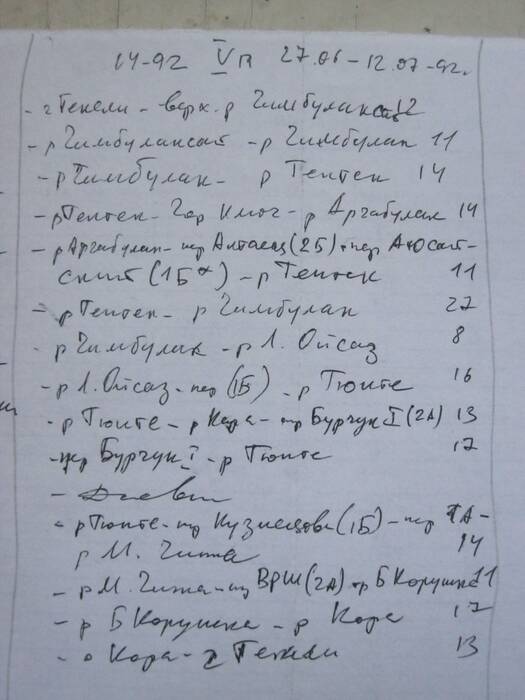 14-92 V п 27.06 - 12.07-92г.
- г Текели - верх. р Чимбулаксай 12
- р Чимбулаксай - р Чимбулак 11
- р Чимбулак - р Тентек 14
- р Тентек - Ключ - р Аргабулак 14
- р Аргабулак - пер (2Б) - пер
(1Б*) - р Тентек 11
- р Тентек - р Чимбулак 27
- р Чимбулак - р Л. Ойсаз 8
- р Л. Ойсаз - пер (1Б) - р Тюнте 16
- р Тюнте - р Кора - пер Бурчук I (2А) 13
- пер Бурчук I - р Тюнте 17
- Дневка
- р Тюнте - пер Кузнецова (1Б) - пер
р М. Чижа 14
- р М. Чижа - пер ВРШ (2А) - р Б Корушка 11
- р Б Корушка - р Кора 17
- р Кора - г Текели 13